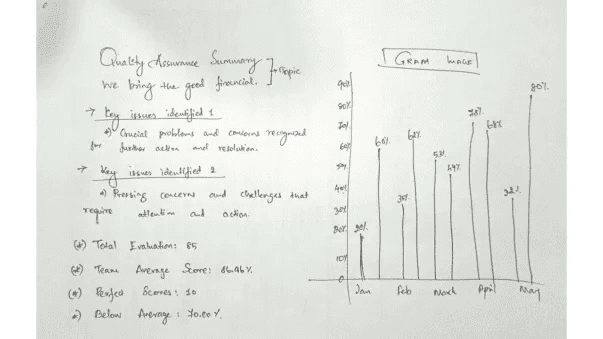 Quality Assurance Summary
We bring the good financial.
Topic
→ Key issues identified 1
*) Crucial problems and concerns recognized
for further action and resolution.
→ Key issues identified 2
*) Pressing concerns and challenges that
require attention and action.
(*) Total Evaluation: 85
(*) Team Average Score: 86.96%
(*) Perfect Scores: 10
*) Below Average: 70.00%
GRAM IMAGE
90%
80%
70%
60%
50%
40%
30%
20%
10%
0
20%
60%
35%
62%
53%
49%
78%
68%
32%
80%
Jan Feb March April May